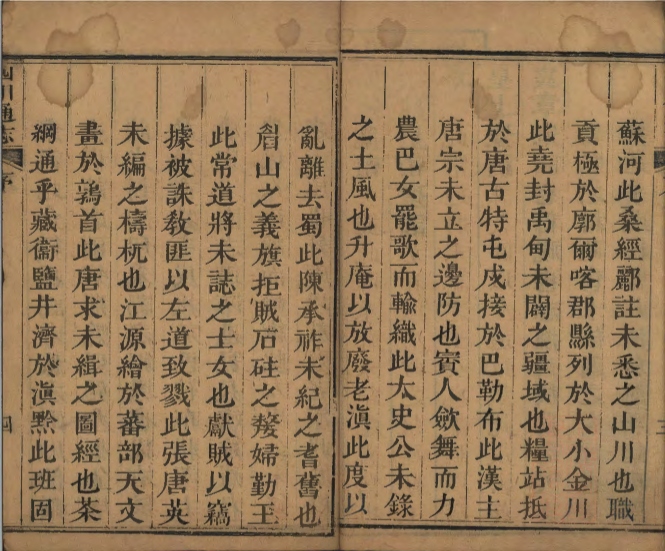 蘇河此桑經酈註未悉之山川也職
貢極於廓爾喀郡縣列於大小金川
此堯封禹甸未闢之疆域也糧站抵
於唐古特屯戍接於巴勒布此漢主
唐宗未立之邊防也賨人歛舞而力
農巴女罷歌而輸織此太史公未錄
之土風也升庵以放廢老滇此度以
亂離去蜀此陳承祚未紀之耆舊也
眉山之義旗拒賊石砫之嫠婦勤王
此常道將未誌之士女也獻賊以竊
據被誅敎匪以左道致戮此張唐英
未編之檮杌也江源繪於蕃部天文
畫於鶉首此唐求未緝之圖經也茶
綱通乎藏衞鹽井濟於滇黔此班固
四川通志
序
四